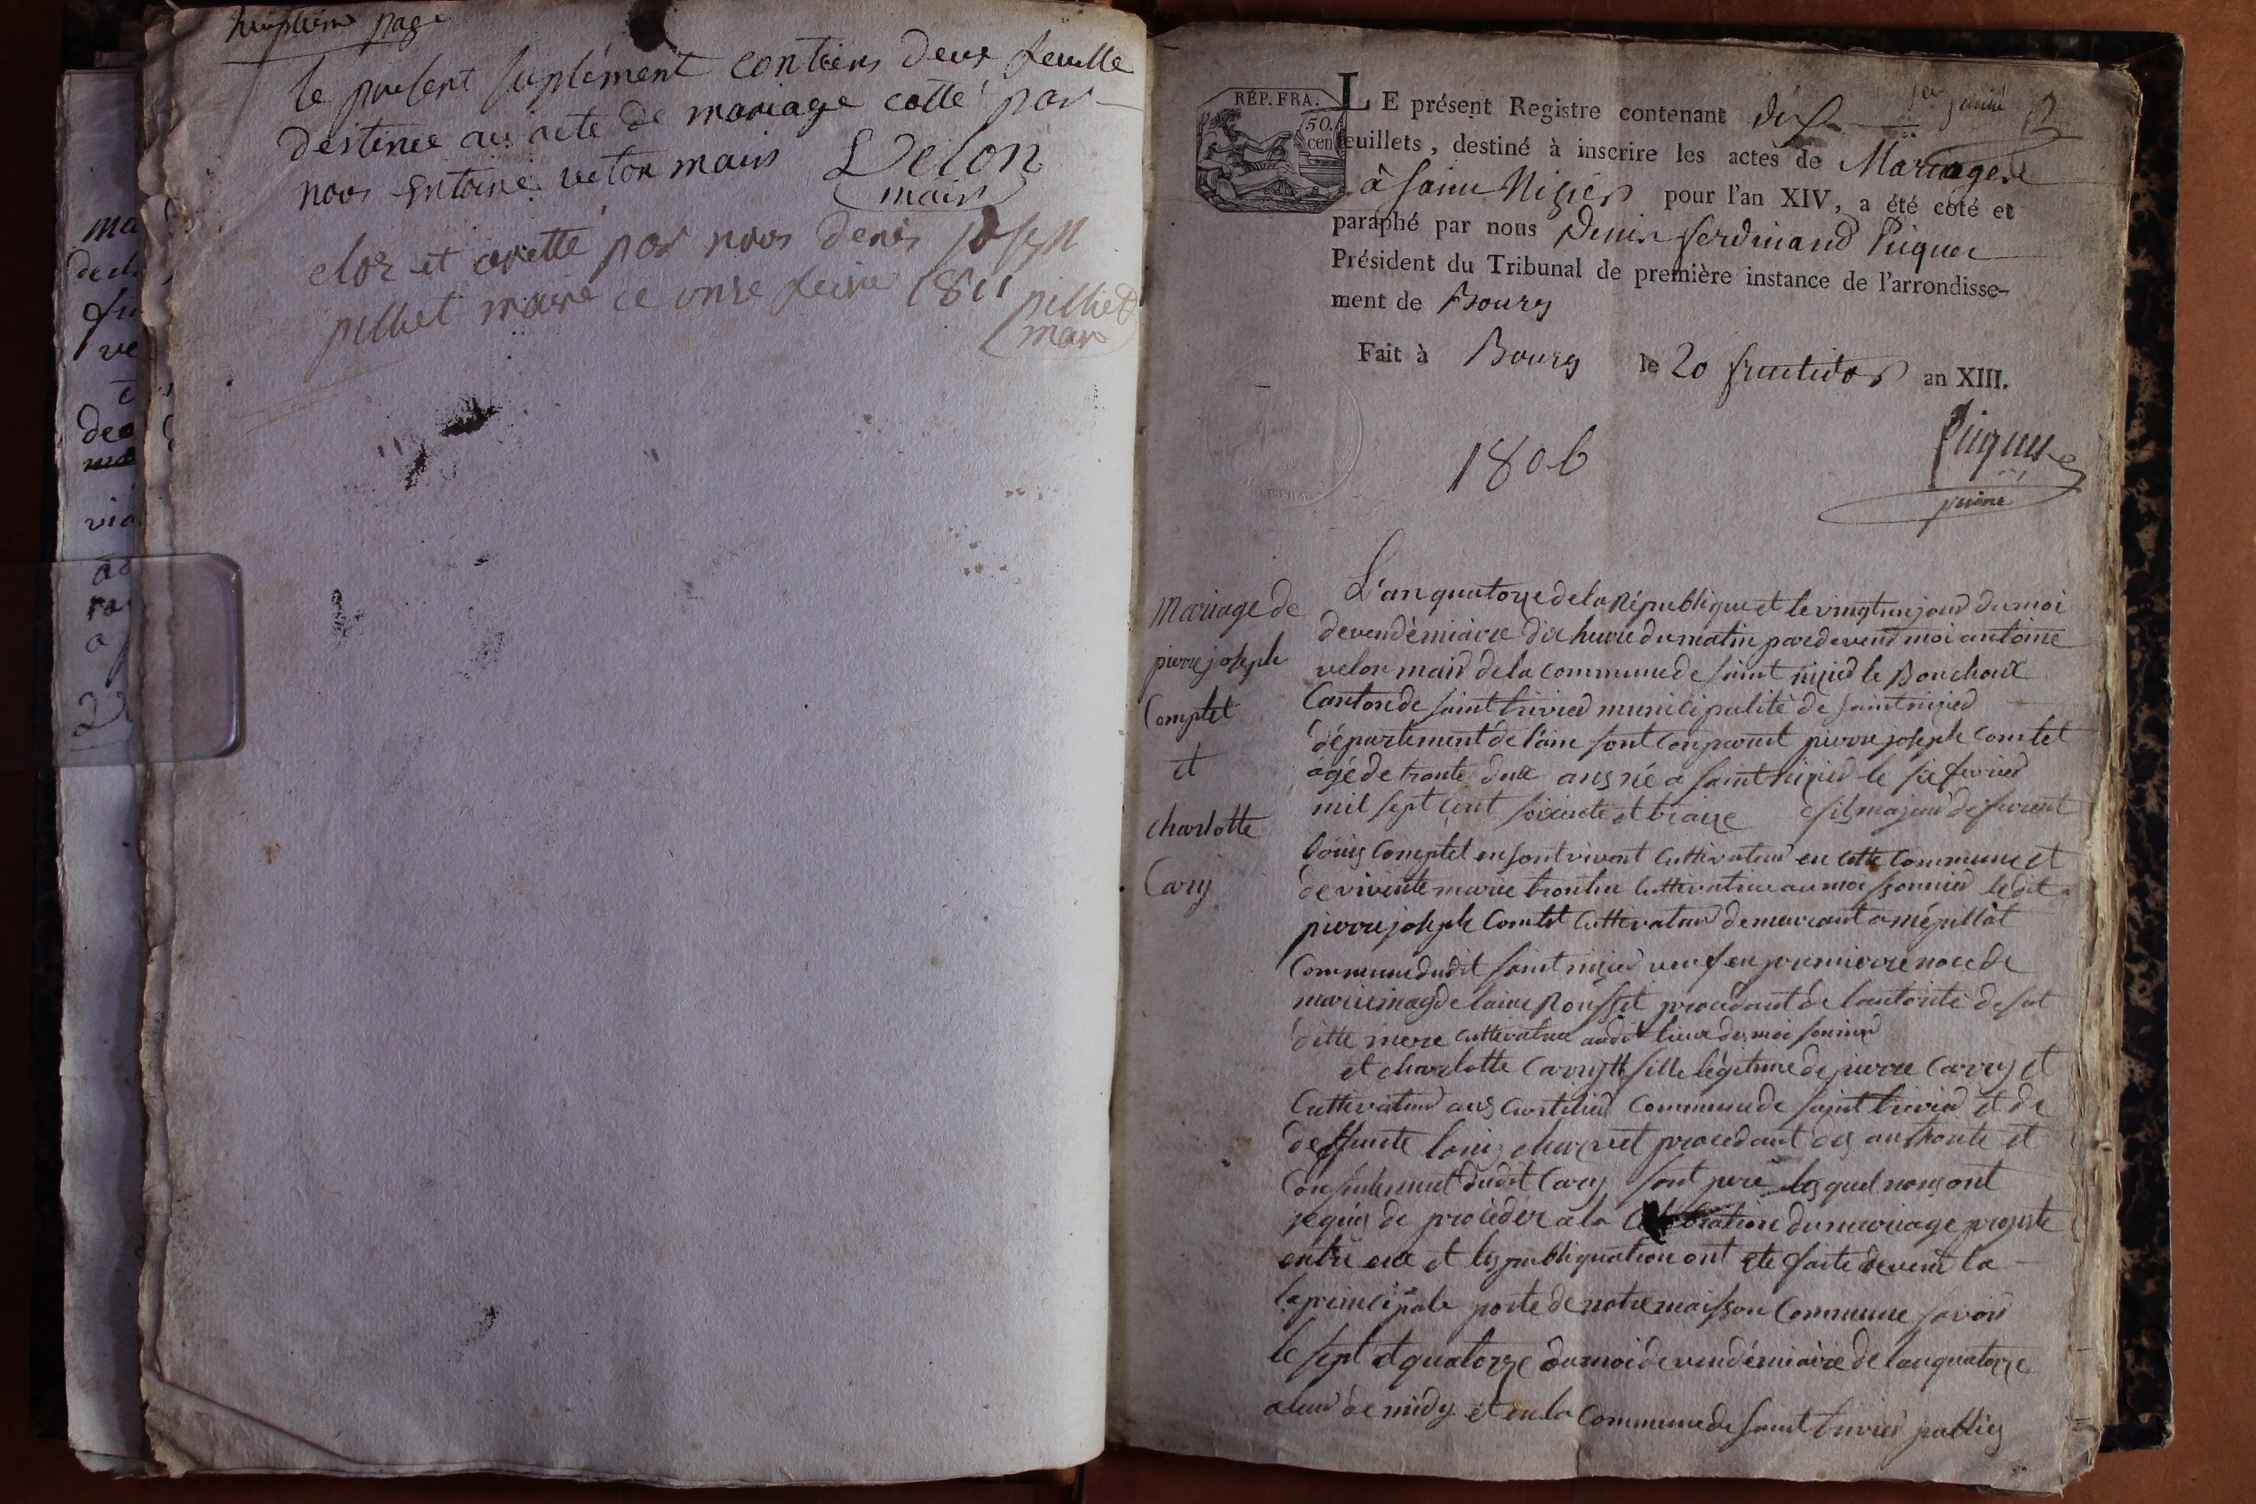 page
le present suplément contien deux feuille
destinee au acte de mariage cotté par
nous antoine velon maire Velon
maire
clor et aretté par nous denis joseph
pilliet maire ce onze fevrie 1811 pilliet
mare
ma
ve
via
RÉP. FRA.
50.
cen
LE présent Registre contenant dix
feuillets, destiné à inscrire les actes de Mariage
à saint Nizier pour l'an XIV, a été coté et
paraphé par nous Denis ferdinand Picquet
Président du Tribunal de première instance de l'arrondisse-
ment de Bourg
Fait à Bourg le 20 fructidor an XIII.
1806
Picquet
Mariage de
pierre joseph
Comptet
et
charlotte
Cary
L'an quatorze de la République et le vingt un jour du moi
de vendémiaire dix heure du matin par devend moi antoine
velon maire de la commune de saint nizied le Bouchoux
Canton de saint trivied municipalité de saint nizied
département de l'ain sont conparut pierre joseph Comtet
agé de trante deux ans né a saint nizied le six fevried
mil sept cent soixente et traize fils majeur de feu
Louis Comptet en sont vivant Cultivateur en cette Commune et
de vivente marie Cultivatrice au moissonnied le dit
pierre joseph Comtet Cultivateur demeurant a mépillat
Commune dudit saint nizied veuf en premiere noce de
marie magdelaine Rousset procedant de l'autorité de sa
ditte mere Cultivatrice audit lieux de moi sonnied
et charlotte Carry fille légitime de pierre Carry et
Cultivateur aux Curtilied Commune de saint trivied et de
deffunte Louis procedant des authorité et
Consentement dudit Cary sont pere lesquel nous ont
requis de procéder a la Celebration du mariage projeté
entre eux et les publiquation ont eté faite devend la
la principale porte de notre maisson Commune savoir
le sept et quatorze du moi de vendémiaire de l'an quatorze
a leur de midy et en la Commune de saint trivied publies